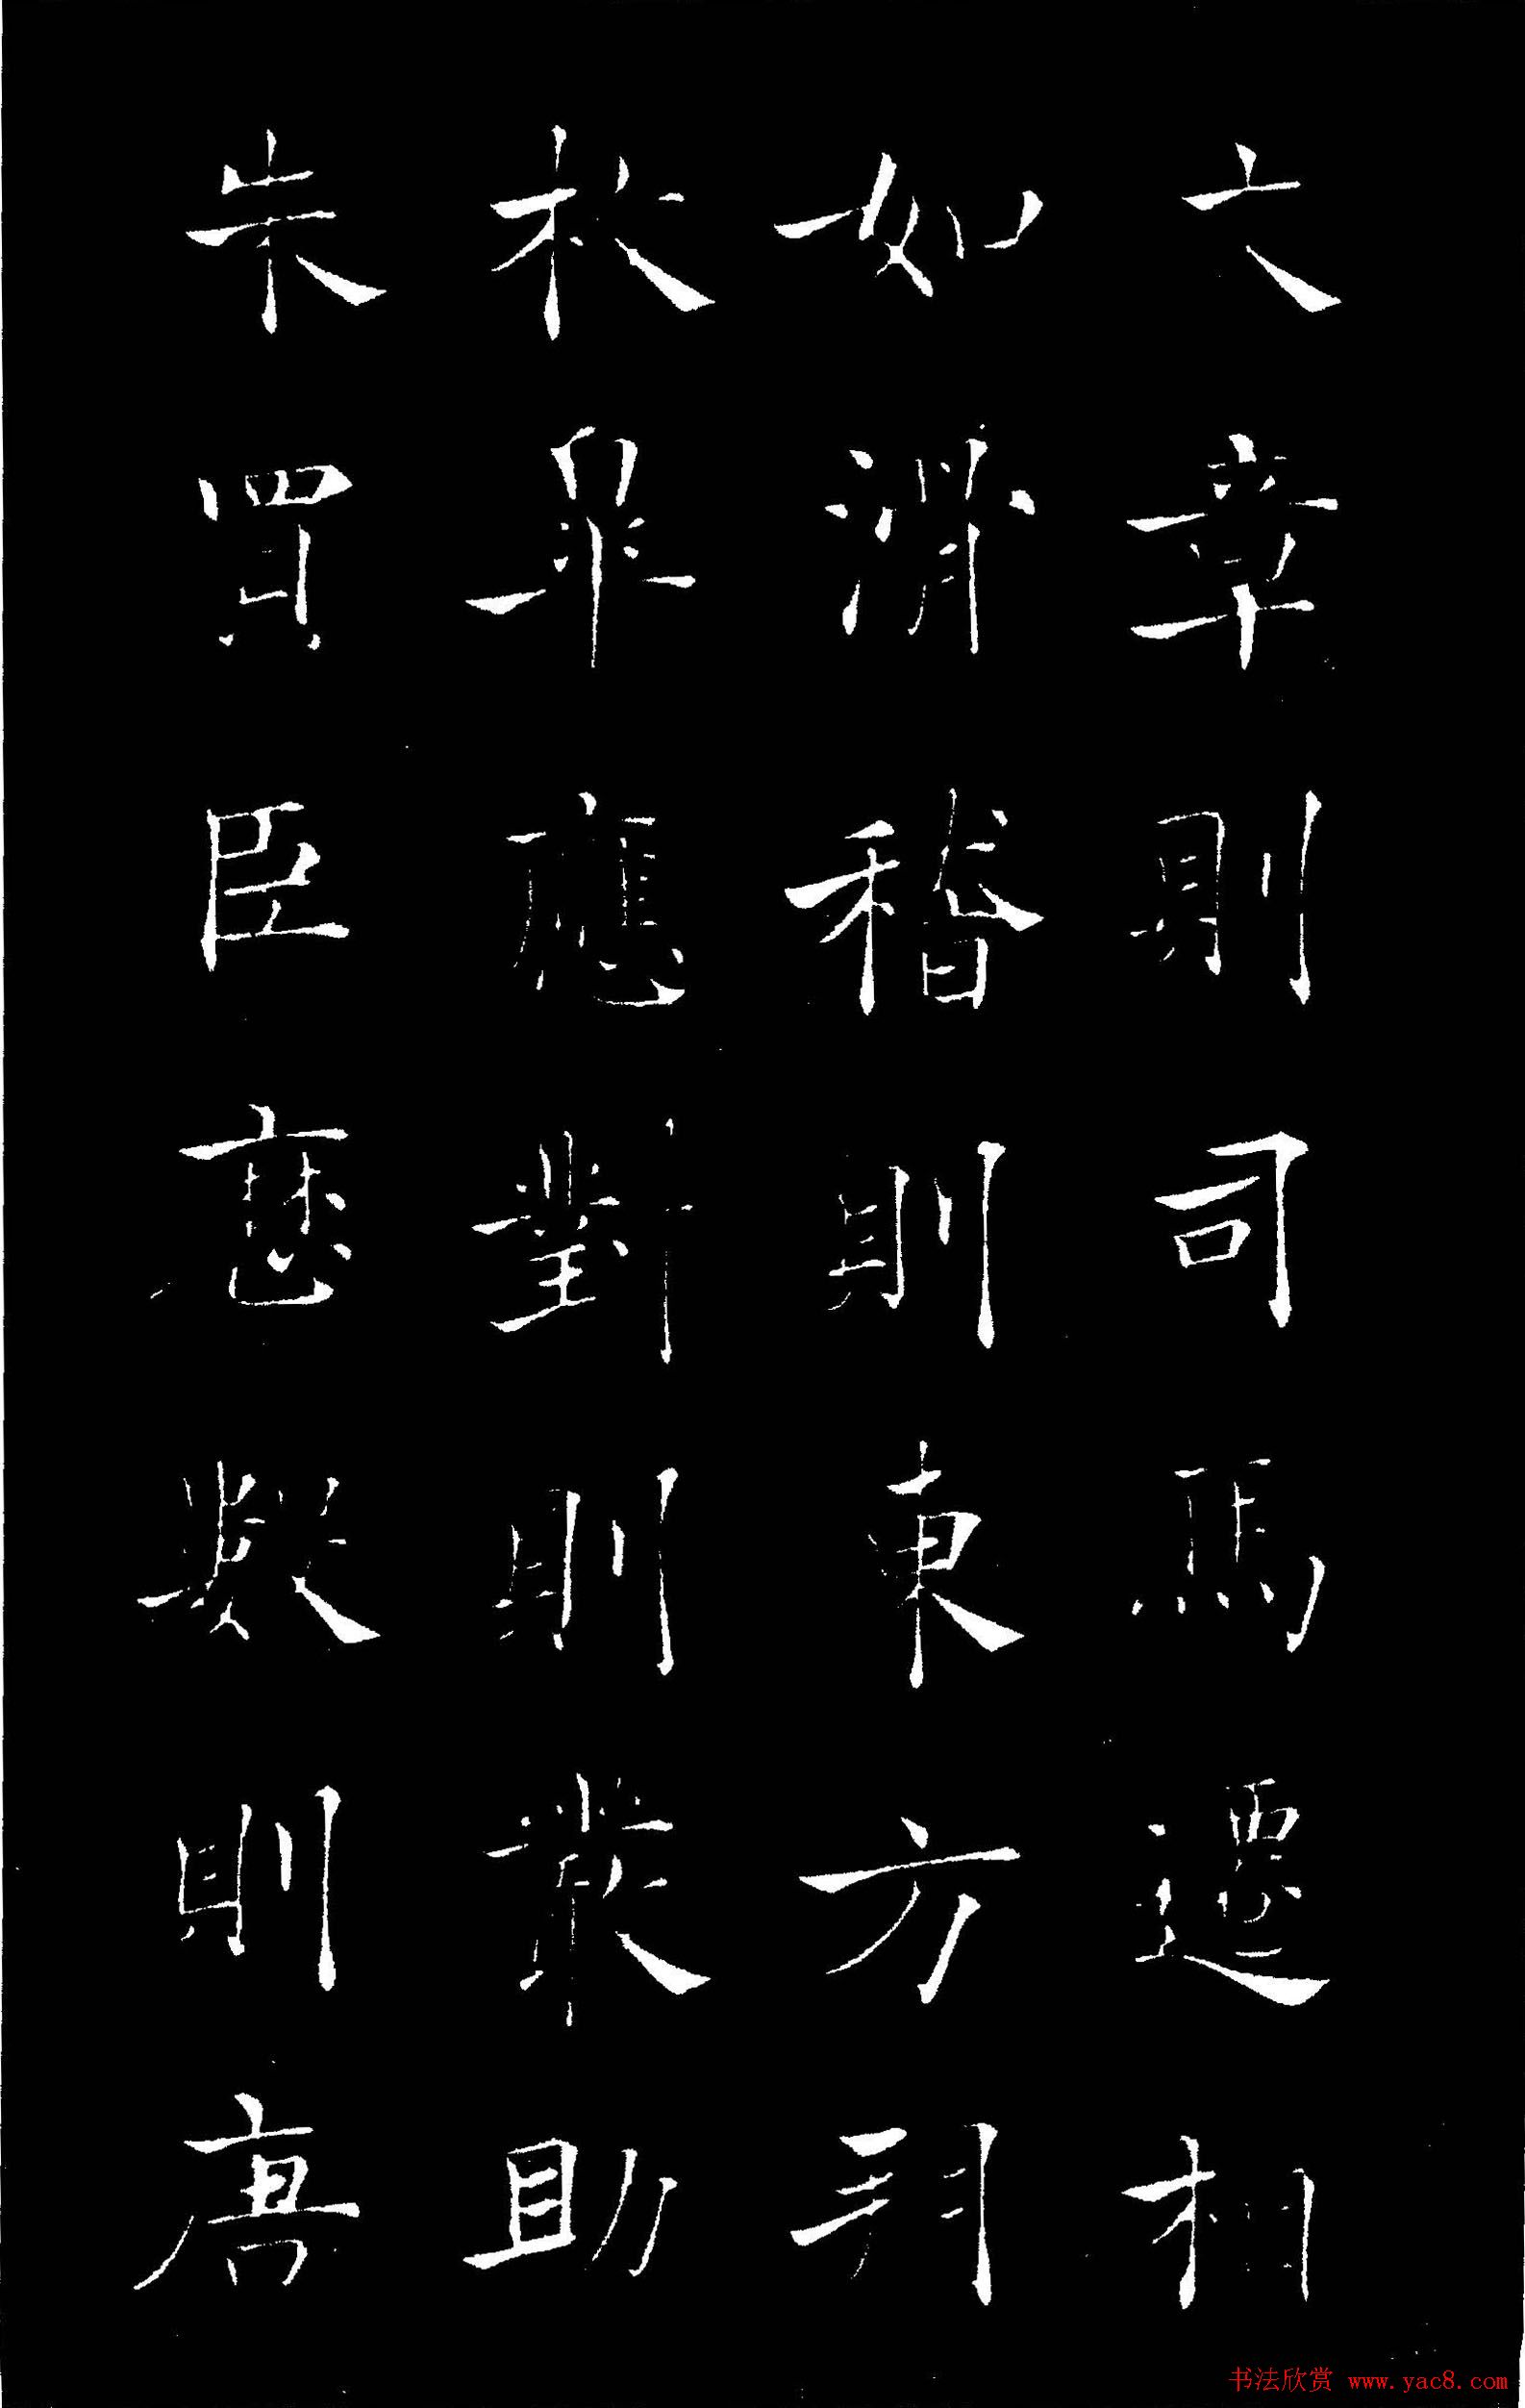 文章則司馬遷相
如滑稽則東方朔
枚皋應對則嚴助
朱買臣歷數則唐
书法欣赏 www.yac8.com